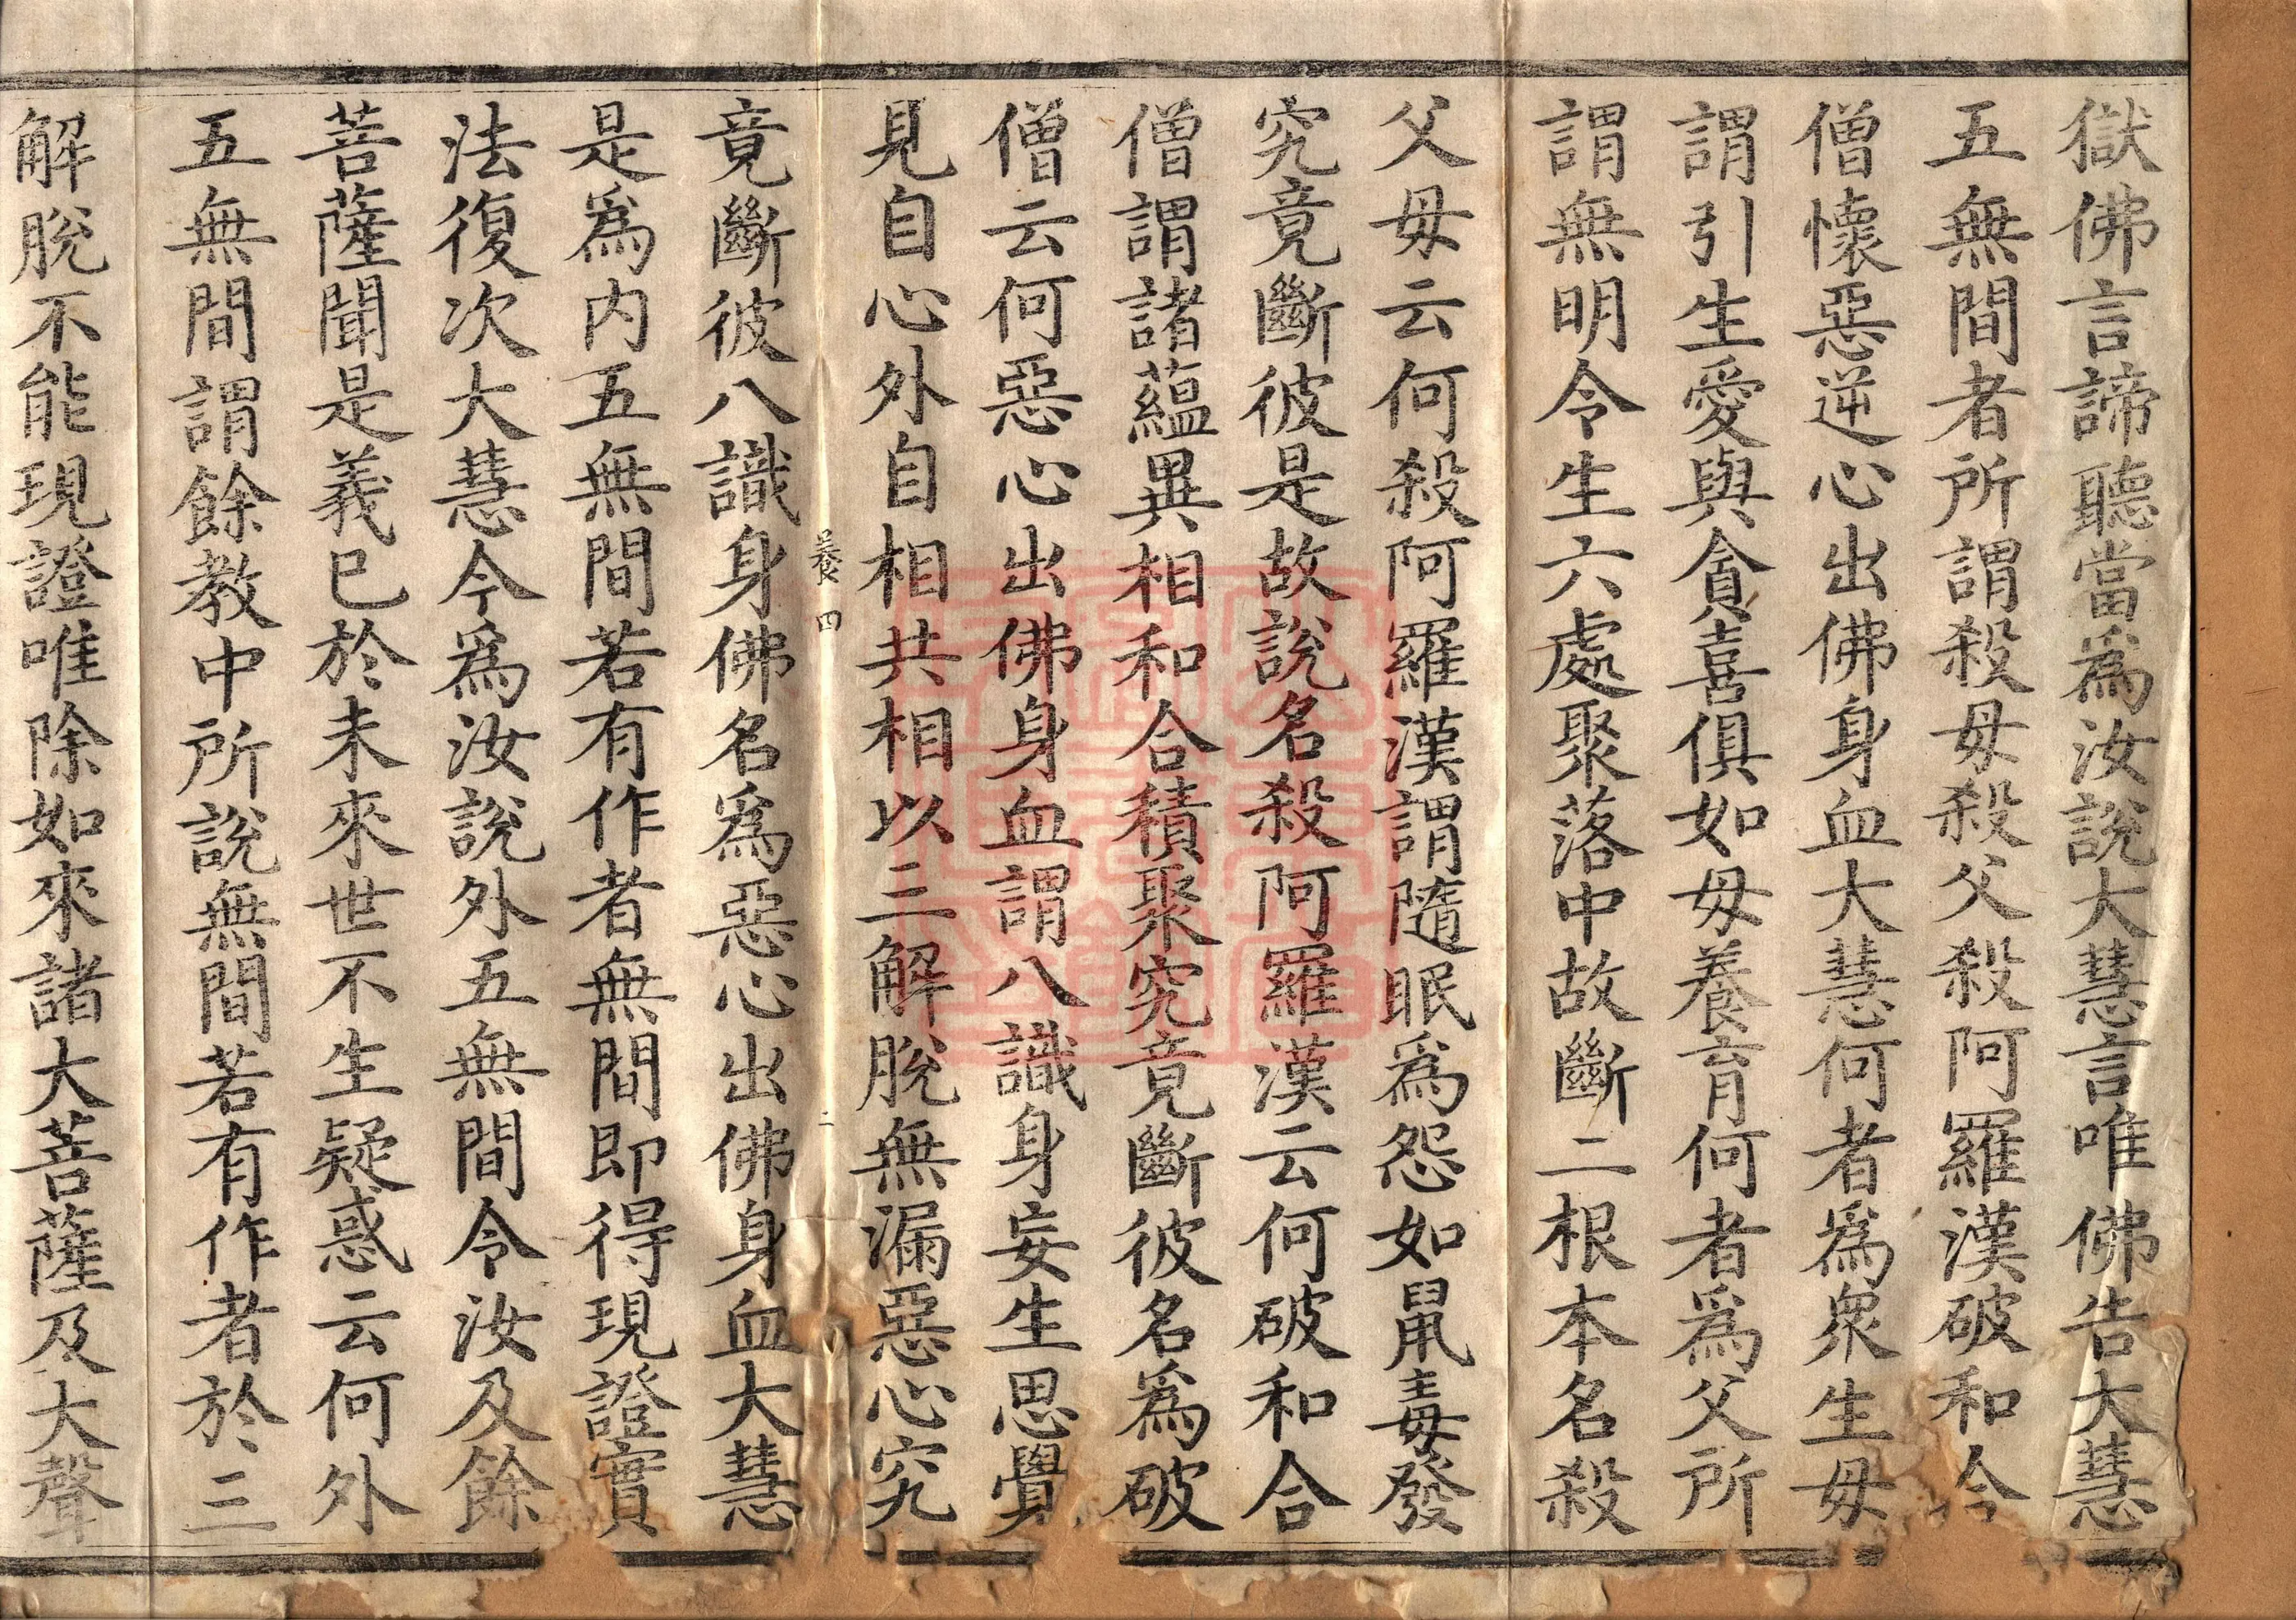 獄佛言諦聽當為汝說大慧言唯佛告大慧
五無間者所謂殺母殺父殺阿羅漢破和合
僧懷惡逆心出佛身血大慧何者為眾生母
謂引生愛與貪喜俱如母養育何者為父所
謂無明令生六處聚落中故斷二根本名殺
父母云何殺阿羅漢謂隨眠為怨如鼠毒發
究竟斷彼是故說名殺阿羅漢云何破和合
僧謂諸蘊異相和合積聚究竟斷彼名為破
僧云何惡心出佛身血謂八識身妄生思覺
見自心外自相共相以三解脫無漏惡心究
養四
二
竟斷彼八識身佛名為惡心出佛身血大慧
是為內五無間若有作者無間即得現證實
法復次大慧今為汝說外五無間令汝及餘
菩薩聞是義已於未來世不生疑惑云何外
五無間謂餘教中所說無間若有作者於三
解脫不能現證唯除如來諸大菩薩及大聲